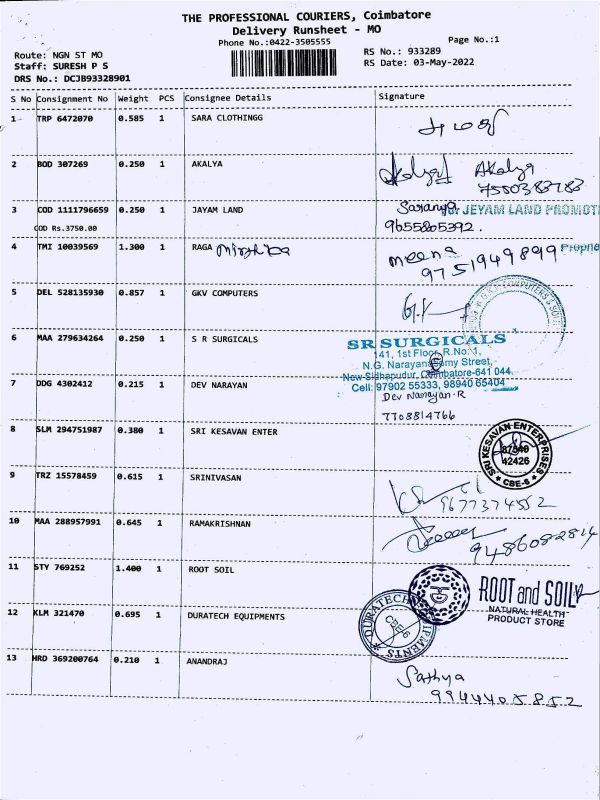 THE PROFESSIONAL COURIERS, Coimbatore
Delivery Runsheet - MO
Phone No.:0422-3505555
Page No.:1
Route: NGN ST MO
RS No.: 933289
Staff: SURESH P S
RS Date: 03-May-2022
DRS No.: DCJB93328901
S No Consignment No Weight PCS Consignee Details Signature
1 TRP 6472070 0.585 1 SARA CLOTHINGG
2 BOD 307269 0.250 1 AKALYA Akalya Akalya
7550383783
3 COD 1111796659 0.250 1 JAYAM LAND Saranya for JEYAM LAND PROMOT
COD Rs.3750.00 9655805392.
4 TMI 10039569 1.300 1 RAGA meena Proprie
9751949899
5 DEL 528135930 0.857 1 GKV COMPUTERS
6 MAA 279634264 0.250 1 S R SURGICALS SR SURGICALS
141, 1st Floor, R.No:1,
N.G. Narayanasamy Street,
New Sidhapudur, Coimbatore-641 044.
Cell: 97902 55333, 98940 65404
7 DDG 4302412 0.215 1 DEV NARAYAN Dev Narayan.R
7708814766
8 SLM 294751987 0.380 1 SRI KESAVAN ENTER SRI KESAVAN ENTERPRISES
42426
CBE-6
9 TRZ 15578459 0.615 1 SRINIVASAN
9677374552
10 MAA 288957991 0.645 1 RAMAKRISHNAN
9486082814
11 STY 769252 1.400 1 ROOT SOIL ROOT and SOIL
NATURAL HEALTH
PRODUCT STORE
12 KLM 321470 0.695 1 DURATECH EQUIPMENTS DURATECH EQUIPMENTS
CBE-6
13 HRD 369200764 0.210 1 ANANDRAJ Sathya
9944405852